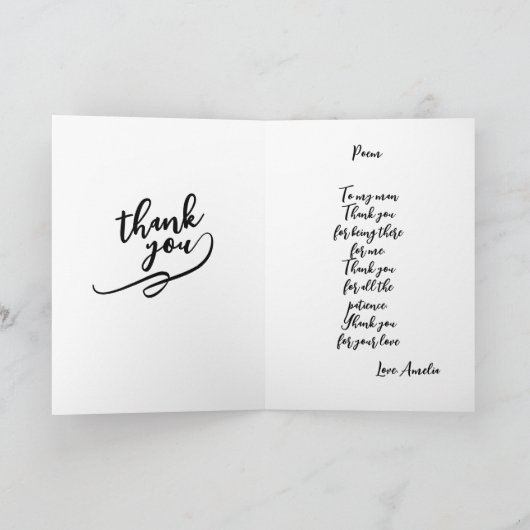 thank
you
Poem
To my man
Thank you
for being there
for me.
Thank you
for all the
patience.
Yhank you
for your love
Love, Amelia